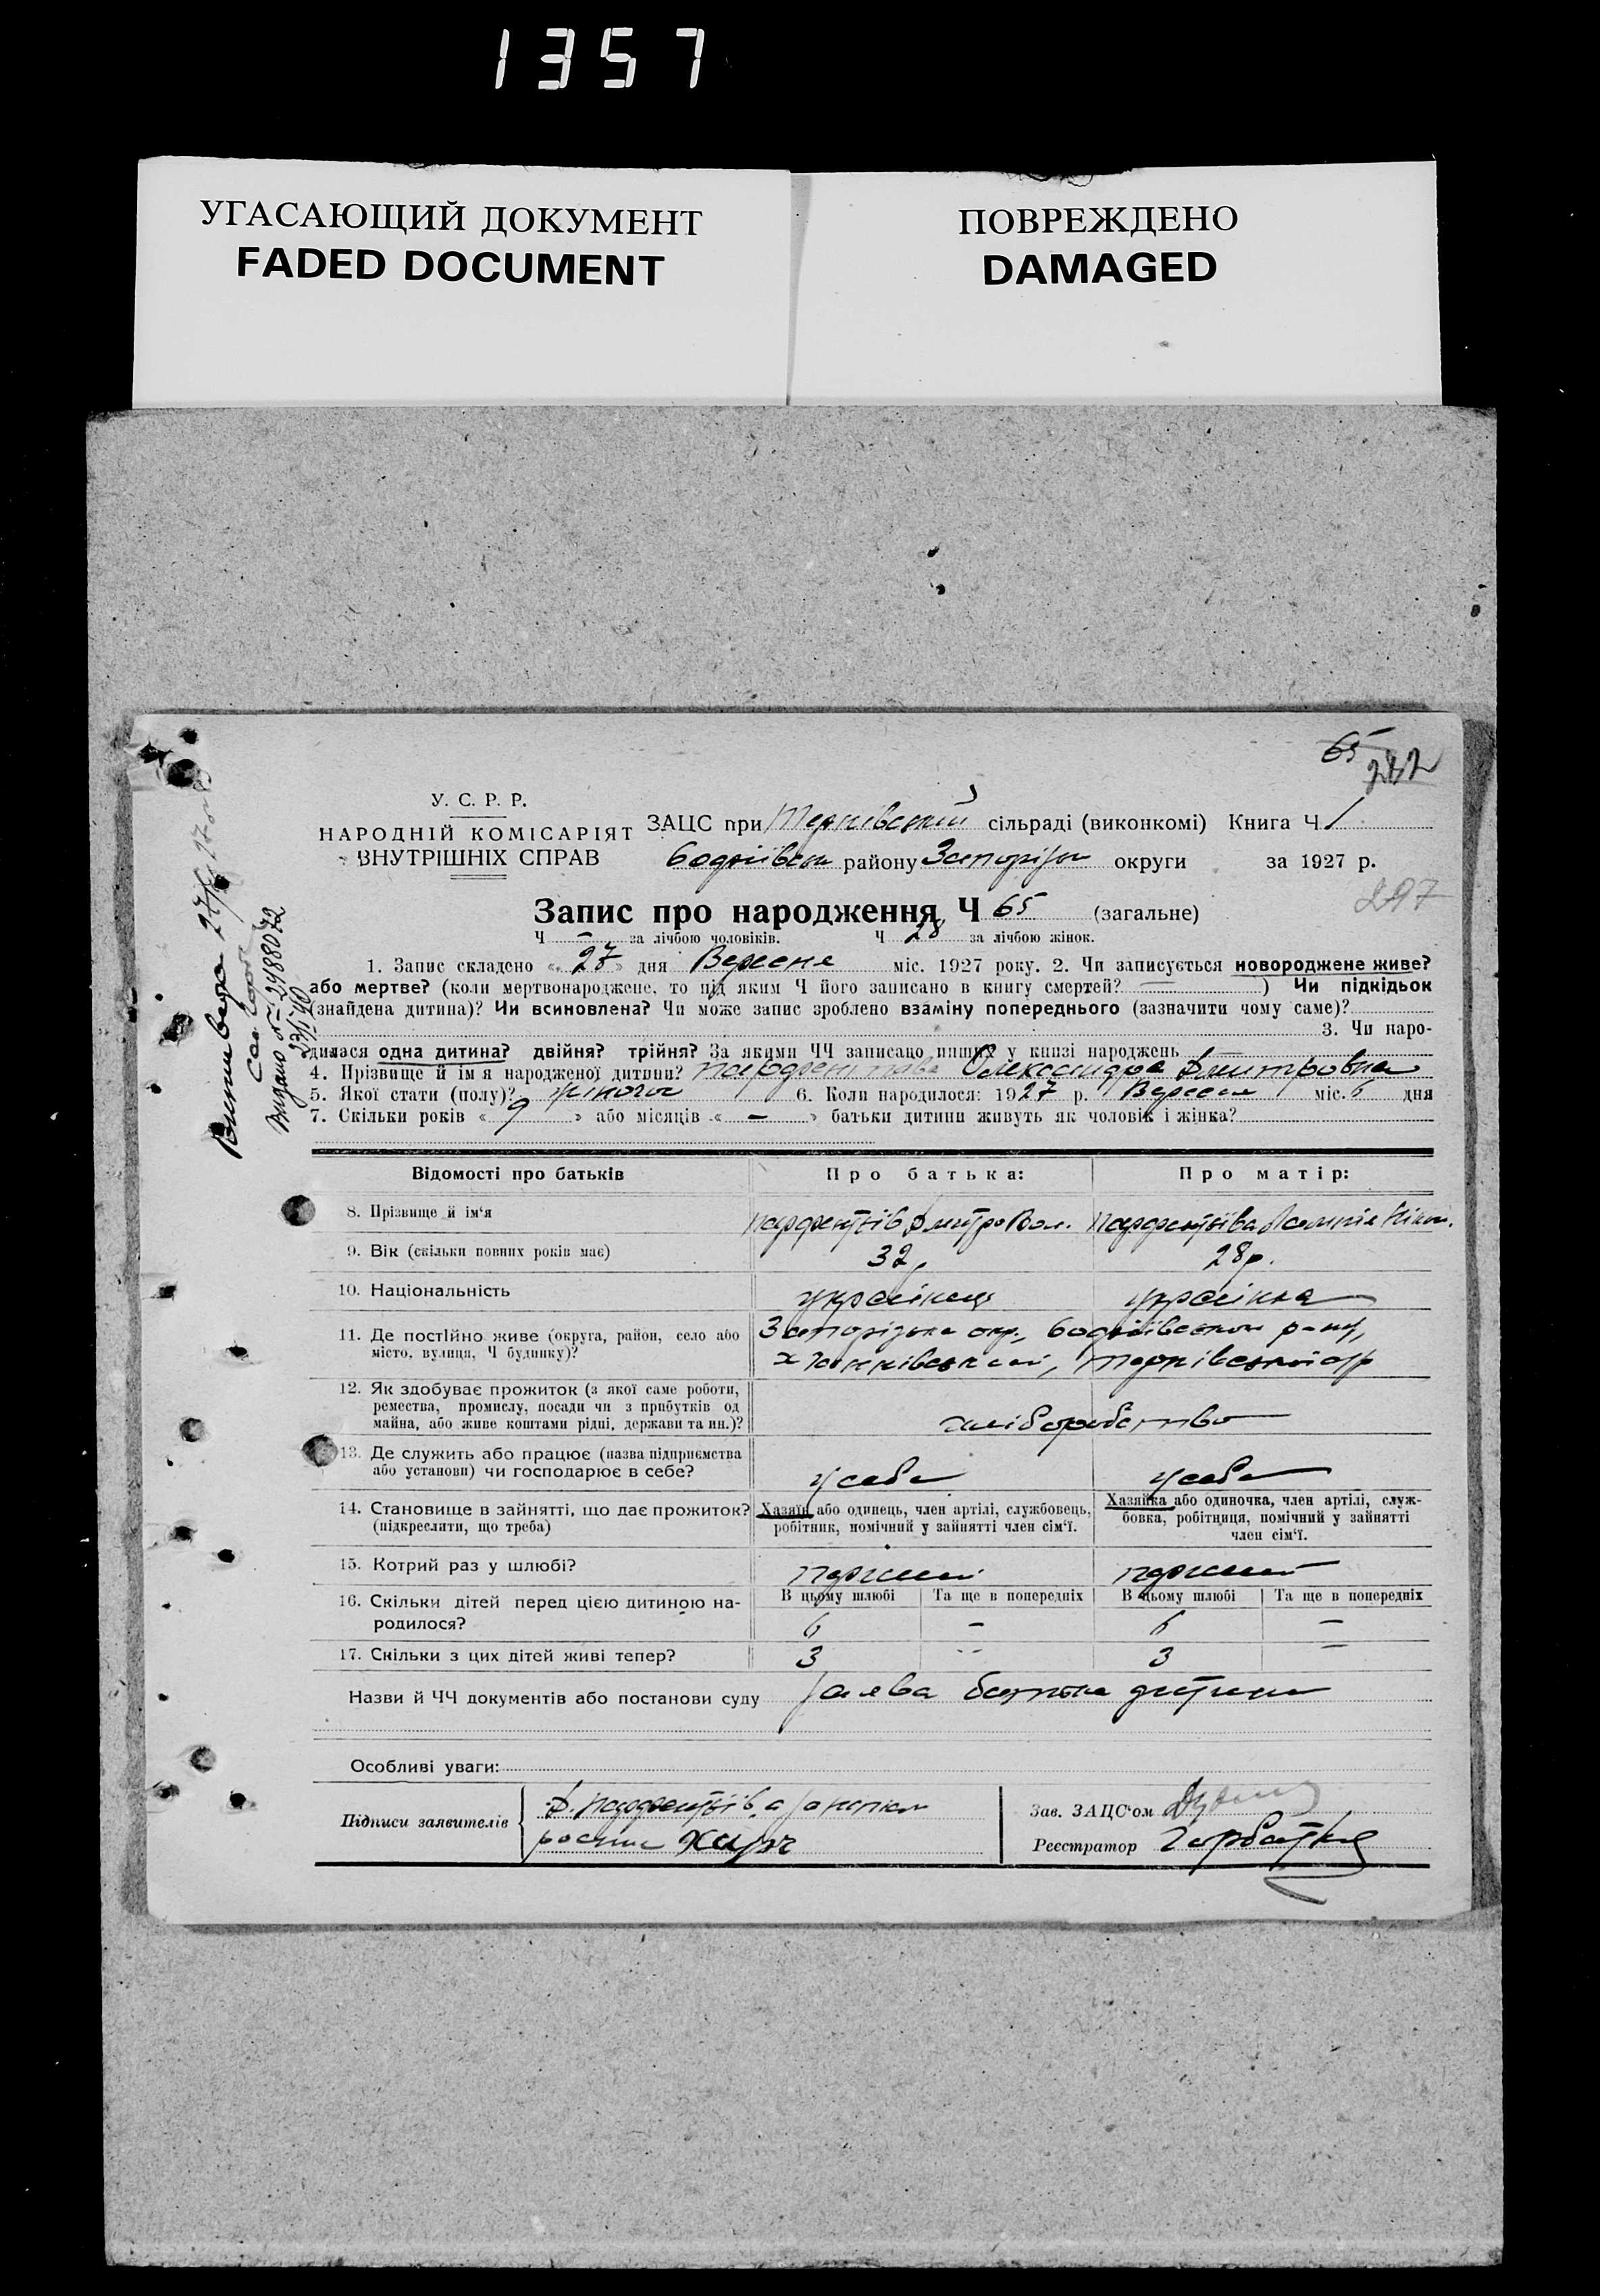 1357
УГАСАЮЩИЙ ДОКУМЕНТ
FADED DOCUMENT
ПОВРЕЖДЕНО
DAMAGED
65
282
У. С. Р. Р.
НАРОДНІЙ КОМІСАРІЯТ
ВНУТРІШНІХ СПРАВ
ЗАЦС при Тернівській сільраді (виконкомі) Книга Ч 1
району Запорізьк округи за 1927 р.
297
Запис про народження Ч 65 (загальне)
Ч – за лічбою чоловіків. Ч 28 за лічбою жінок.
1. Запис складено « 27 » дня Вересня міс. 1927 року. 2. Чи записується новороджене живе?
або мертве? (коли мертвонароджене, то під яким Ч його записано в книгу смертей? — ) Чи підкідьок
(знайдена дитина)? Чи всиновлена? Чи може запис зроблено взаміну попереднього (зазначити чому саме)?
3. Чи наро-
дилася одна дитина? двійня? трійня? За якими ЧЧ записацо инших у книзі народжень
4. Прізвище й ім'я народженої дитини? Олександра Дмитровна
5. Якої стати (полу)? жіночої 6. Коли народилося: 1927 р. Вересня міс. 6 дня
7. Скільки років « 9 » або місяців « – » батьки дитини живуть як чоловік і жінка?
Відомості про батьків
Про батька:
Про матір:
8. Прізвище й ім'я
Парфентьїв Дмитро Вол.
Парфентьїва
9. Вік (скільки повних років має)
32 р
28 р.
10. Національність
українець
українка
11. Де постійно живе (округа, район, село або
місто, вулиця, Ч будинку)?
Запорізька окр.,
12. Як здобуває прожиток (з якої саме роботи,
ремества, промислу, посади чи з прибутків од
майна, або живе коштами рідні, держави та ин.)?
хліборобство
13. Де служить або працює (назва підприємства
або установи) чи господарює в себе?
у себе
у себе
14. Становище в зайнятті, що дає прожиток?
(підкреслити, що треба)
Хазяїн або одинець, член артілі, службовець,
робітник, помічний у зайнятті член сім'ї.
Хазяйка або одиночка, член артілі, служ-
бовка, робітниця, помічний у зайнятті
член сім'ї.
15. Котрий раз у шлюбі?
16. Скільки дітей перед цією дитиною на-
родилося?
В цьому шлюбі
Та ще в попередніх
В цьому шлюбі
Та ще в попередніх
6 – 6 –
17. Скільки з цих дітей живі тепер?
3 – 3 –
Назви й ЧЧ документів або постанови суду заява батька дитини
Особливі уваги:
Підписи заявителів
Д. Парфентьїв,
Зав. ЗАЦС'ом
Реєстратор Горбатко